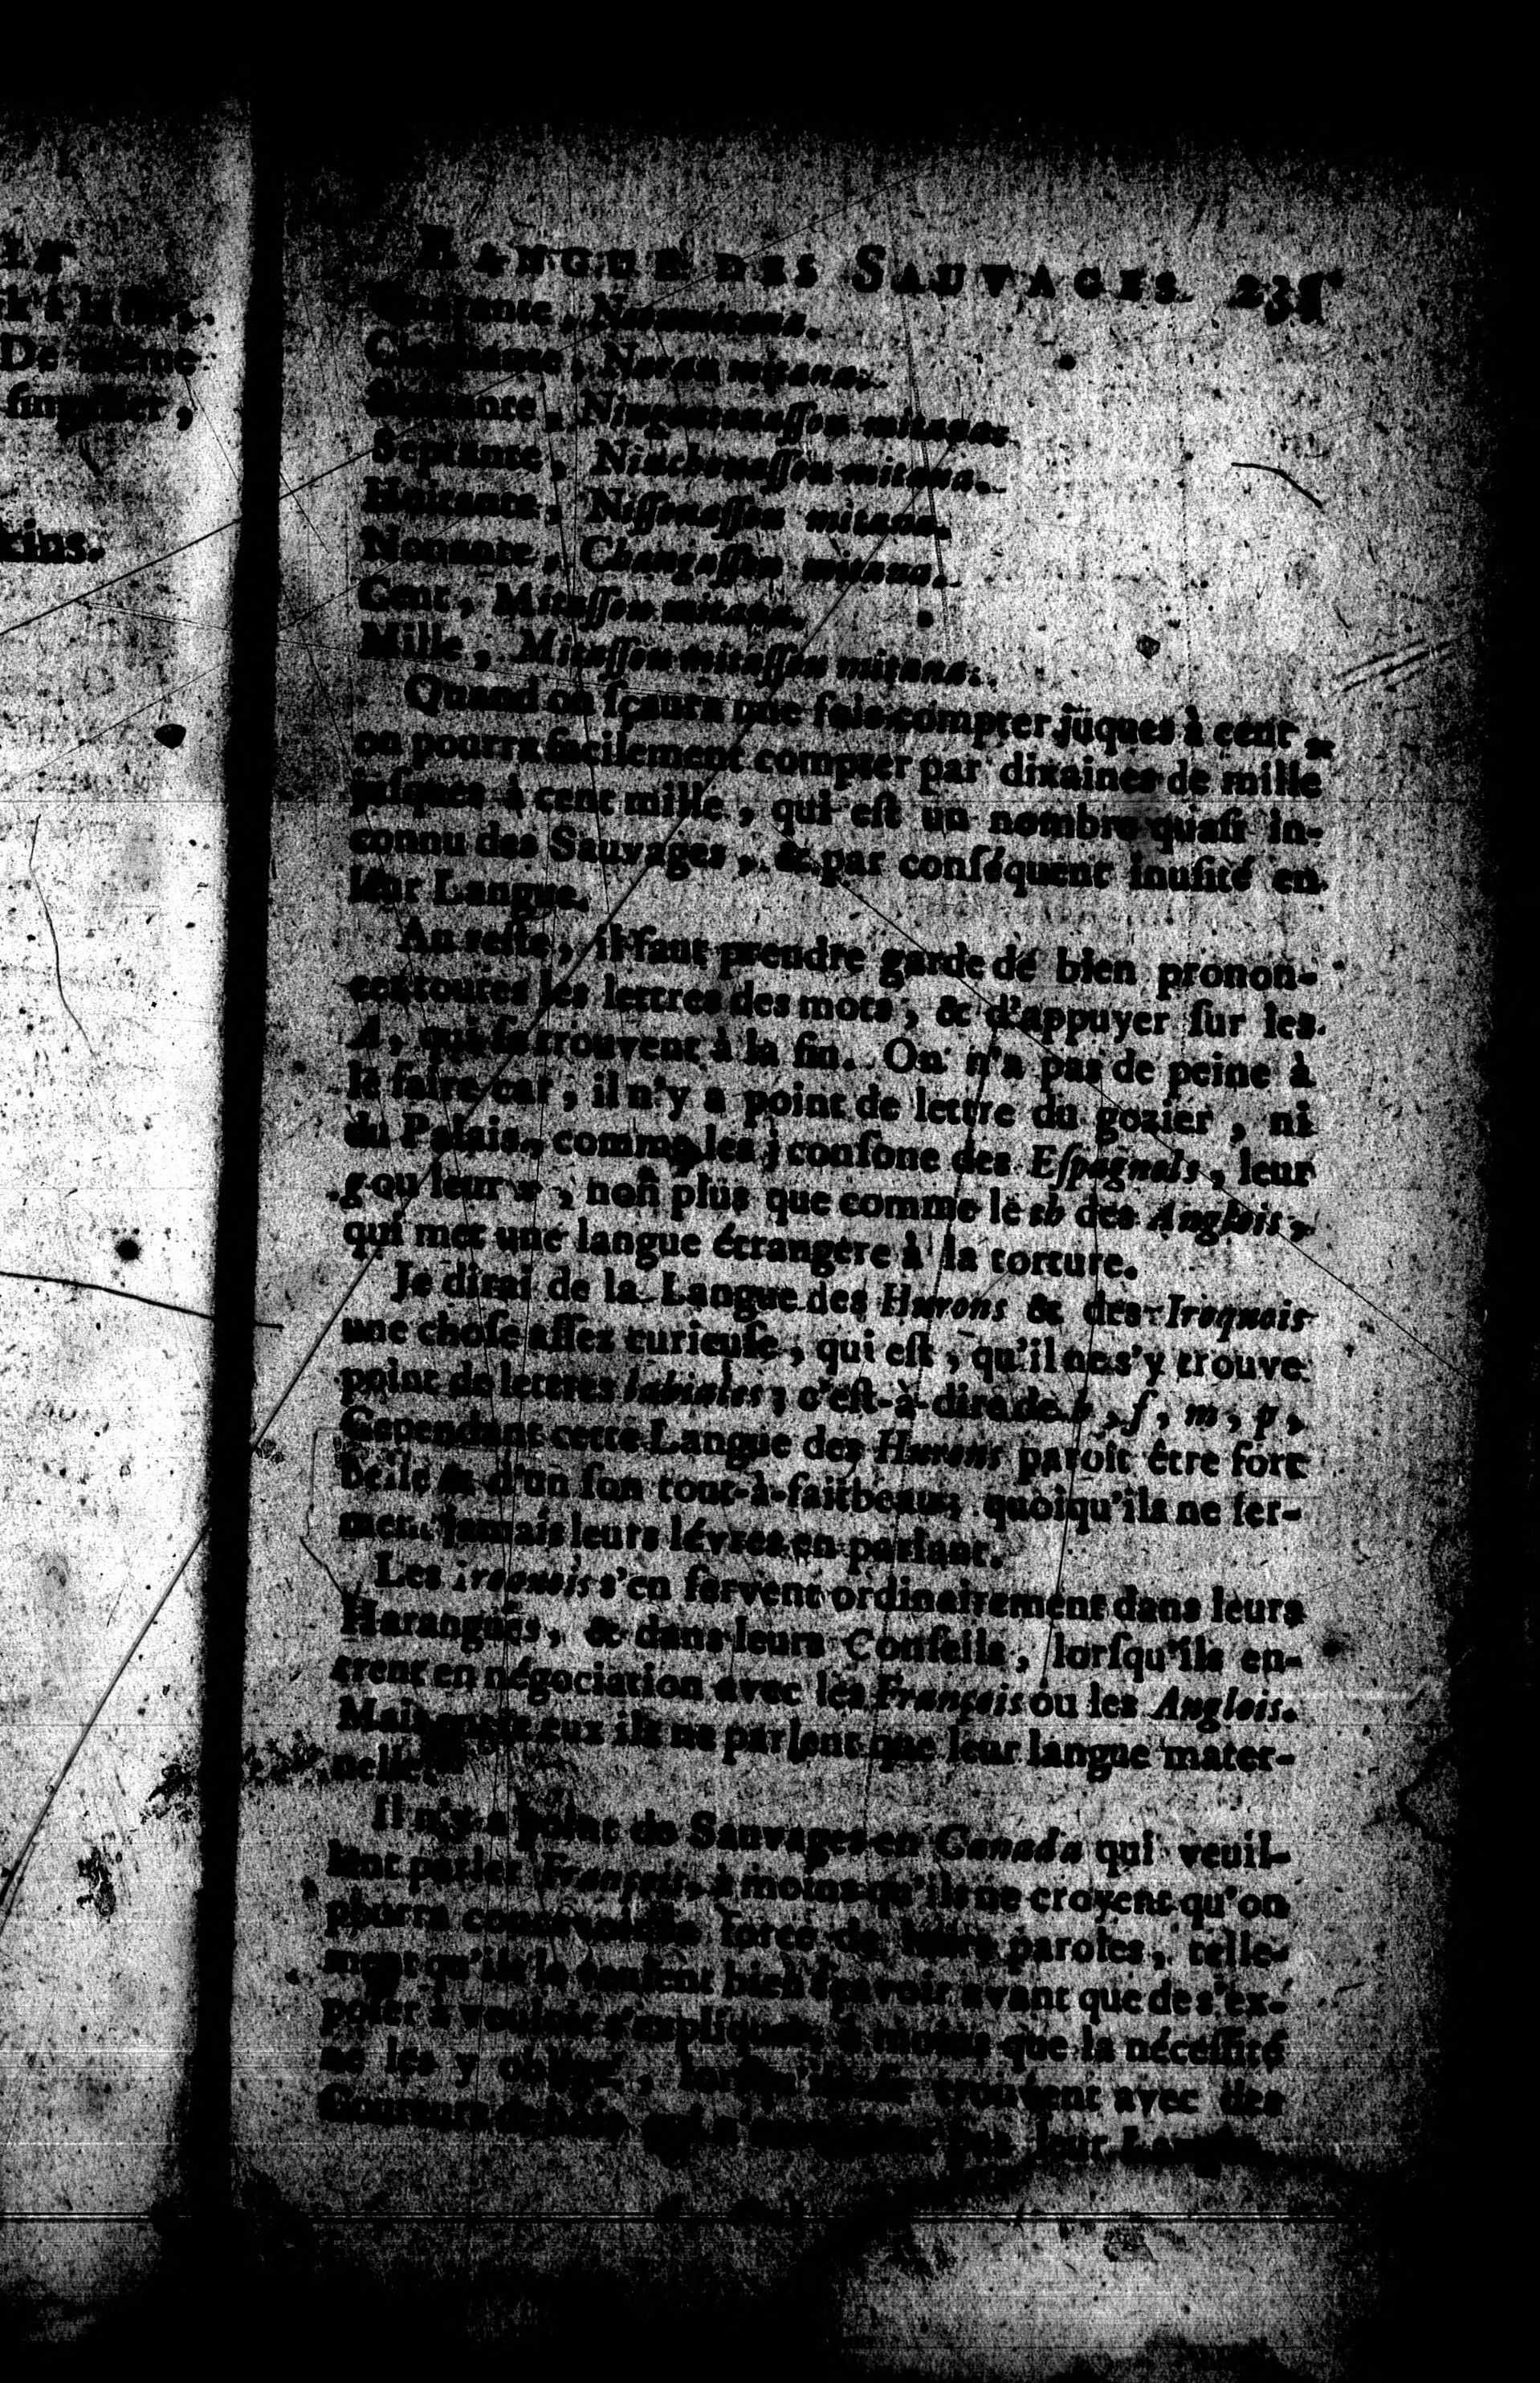 LANGUE DES SAUVAGES. 235
Quarante, Neoumitana.
Cinquante, Naran mitana.
Soixante, Ningoutouaſſou mitana.
Septante, Ninchouaſſou mitana.
Huitante, Niſſouaſſou mitana.
Nonante, Changaſſou mitana.
Cent, Mitaſſou mitana.
Mille, Mitaſſou mitaſſou mitana.
Quand on ſçaura une fois compter juques à cent,
on pourra facilement compter par dixaines de mille
juſques à cent mille, qui eſt un nombre quaſi in-
connu des Sauvages, & par conſéquent inuſité en
leur Langue.
Au reſte, il faut prendre garde de bien pronon-
cer toutes les lettres des mots, & d'appuyer ſur les
A, qui ſe trouvent à la fin. On n'a pas de peine à
le faire car, il n'y a point de lettre du gozier, ni
du Palais, comme les j conſone des Eſpagnols, leur
g ou leur x, non plus que comme le th des Anglois,
qui met une langue étrangere à la torture.
Je dirai de la Langue des Hurons & des Iroquois
une choſe aſſez curieuſe, qui eſt, qu'il ne s'y trouve
point de lettres labiales; c'eſt-à-dire de b, f, m, p,
Cependant cette Langue des Hurons paroît être fort
belle & d'un ſon tout-à-fait beau; quoiqu'ils ne fer-
ment jamais leurs lévres en parlant.
Les Iroquois s'en ſervent ordinairement dans leurs
Harangues, & dans leurs Conſeils, lorſqu'ils en-
trent en négociation avec les Français ou les Anglois.
Mais entre eux ils ne parlent que leur langue mater-
nelle.
Il n'y a point de Sauvages en Canada qui veuil-
lent parler Français, à moins qu'ils ne croyent qu'on
pourra concevoir la force de leurs paroles, telle-
ment qu'ils le veulent bien ſçavoir avant que de s'ex-
poſer à vouloir s'expliquer, à moins que la néceſſité
ne les y oblige, lorſqu'ils ſe trouvent avec des
Coureurs de bois qui n'entendent pas leur Langue.
k à la fin,
De même
ſingulier,
kins.